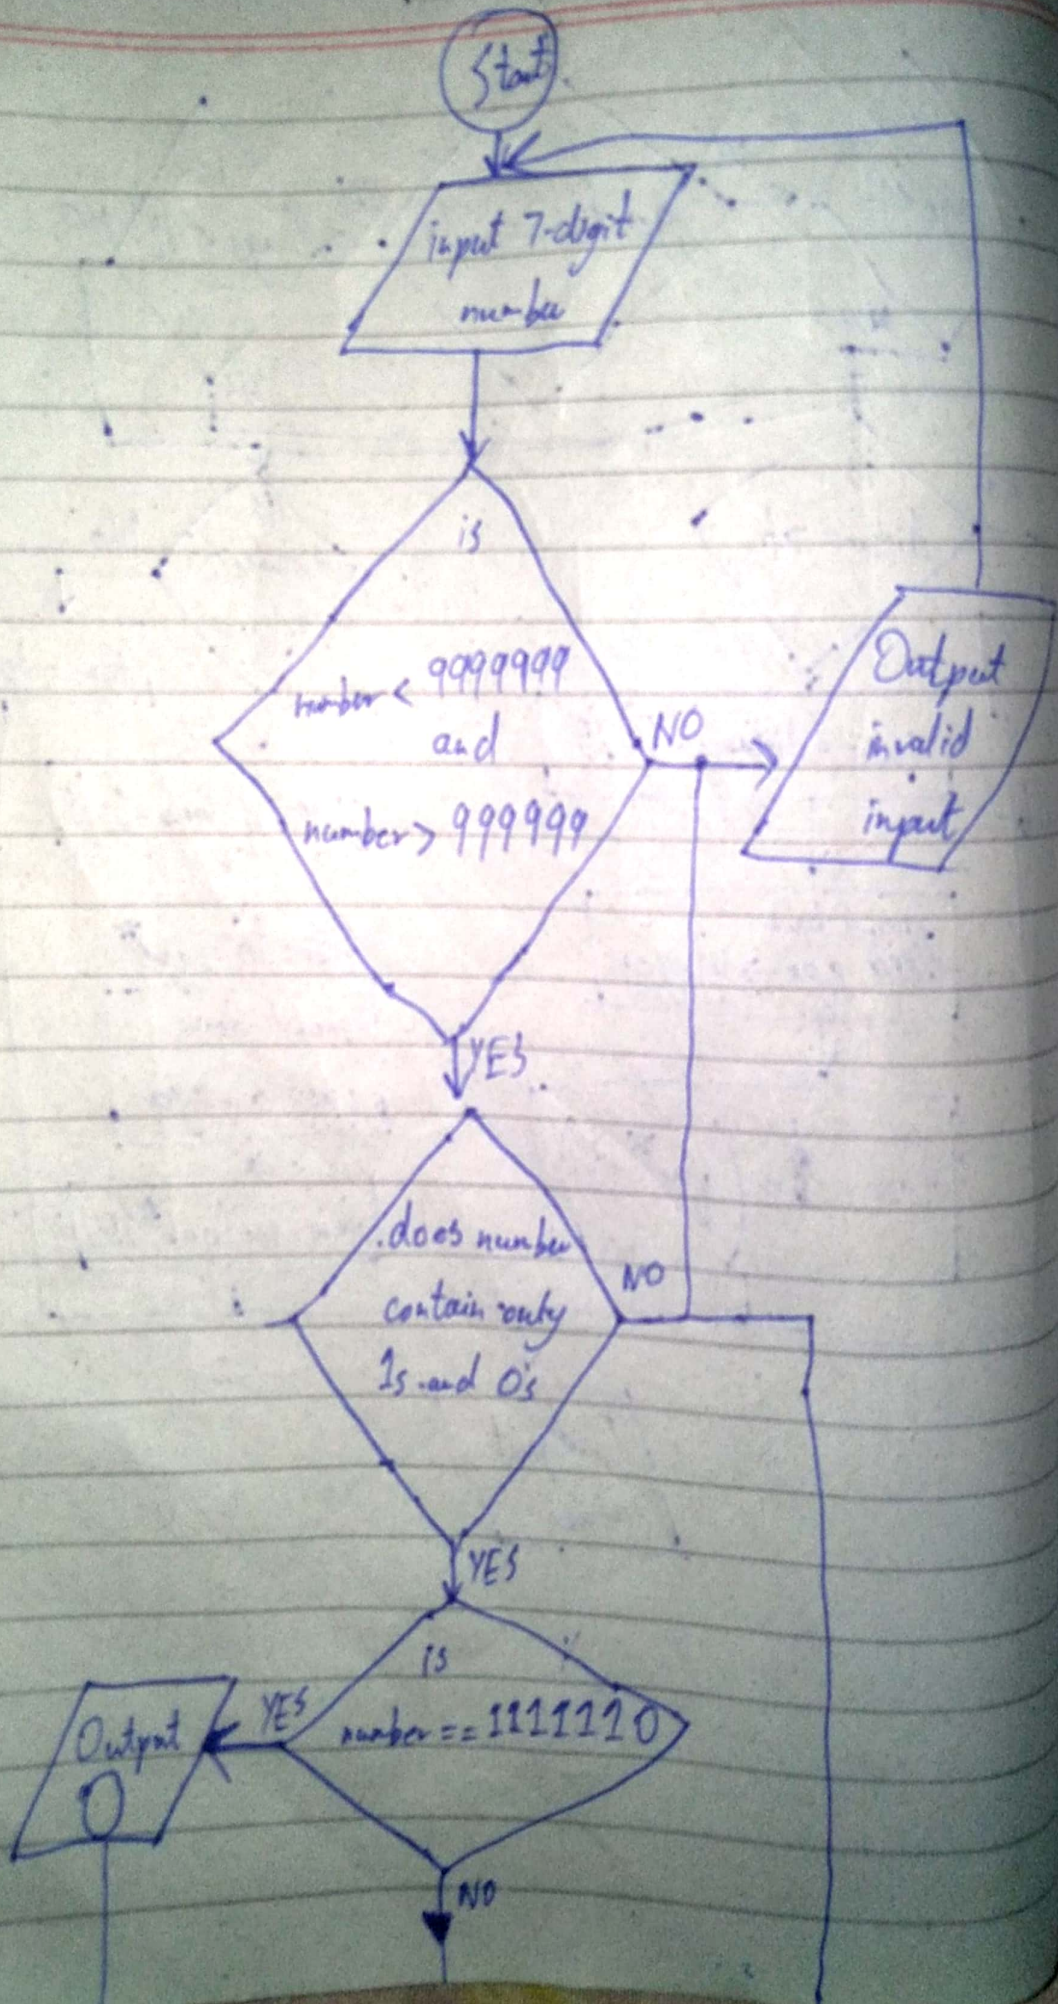 Start
input 7-digit
number
is
number < 9999999
and
number > 999999
NO
Output
invalid
input
YES
does number
contain only
1s and 0's
NO
YES
is
number == 1111110
YES
Output
0
NO